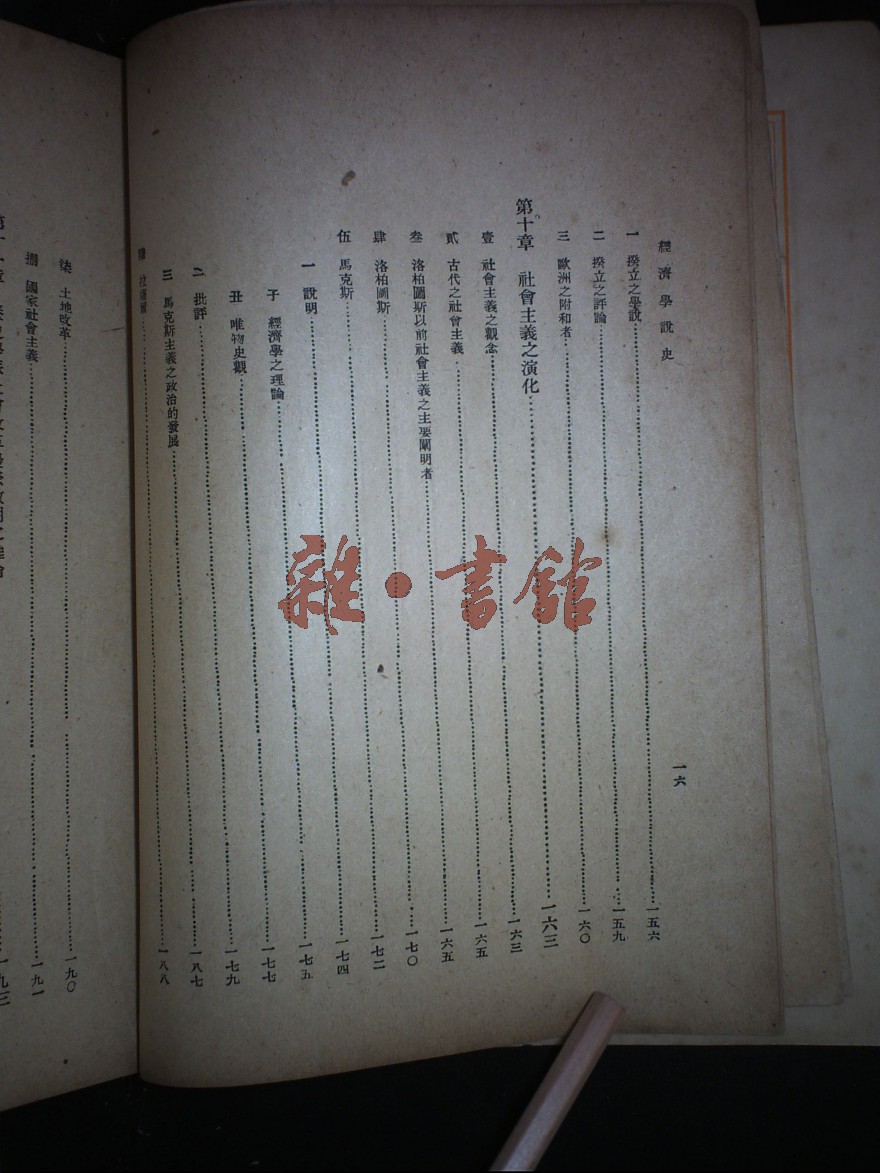 經濟學說史
一六
一 揆立之學說……一五六
二 揆立之評論……一五九
三 歐洲之附和者……一六〇
第十章 社會主義之演化……一六三
壹 社會主義之觀念……一六三
貳 古代之社會主義……一六五
叁 洛柏圖斯以前社會主義之主要闡明者……一六五
肆 洛柏圖斯……一七〇
伍 馬克斯……一七二
一 說明……一七四
子 經濟學之理論……一七五
丑 唯物史觀……一七七
二 批評……一七九
三 馬克斯主義之政治的發展……一八七
一八八
柒 土地改革……一九〇
捌 國家社會主義……一九一
一九三
雜·書館